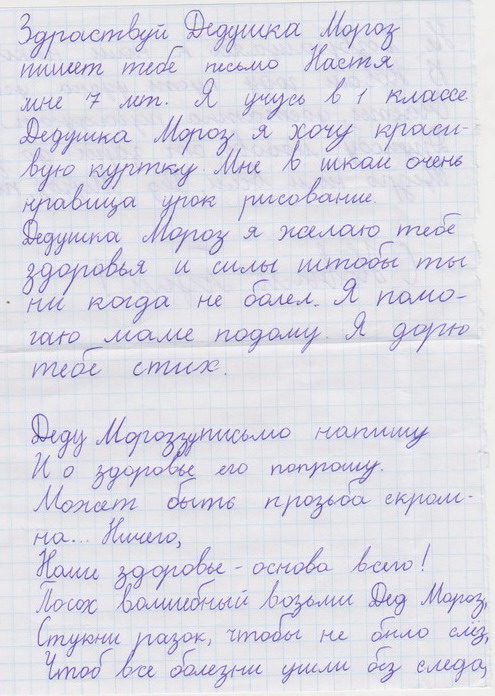 Здраствуй Дедушка Мороз
пишет тебе письмо Настя
мне 7 лет. Я учусь в 1 классе.
Дедушка Мороз я хочу краси-
вую куртку. Мне в шкали очень
нравица урок рисование.
Дедушка Мороз я желаю тебе
здоровья и силы штобы ты
ни когда не болел. Я помо-
гаю маме подому. Я дарю
тебе стих.
Деду Морозу письмо напишу
И о здоровье его попрошу.
Может быть прозьба скром-
на... Ничего,
Наше здоровье - основа всего!
Посох волшебный возьми Дед Мороз,
Стукни разок, чтобы не было слёз,
Чтоб все болезни ушли без следа,